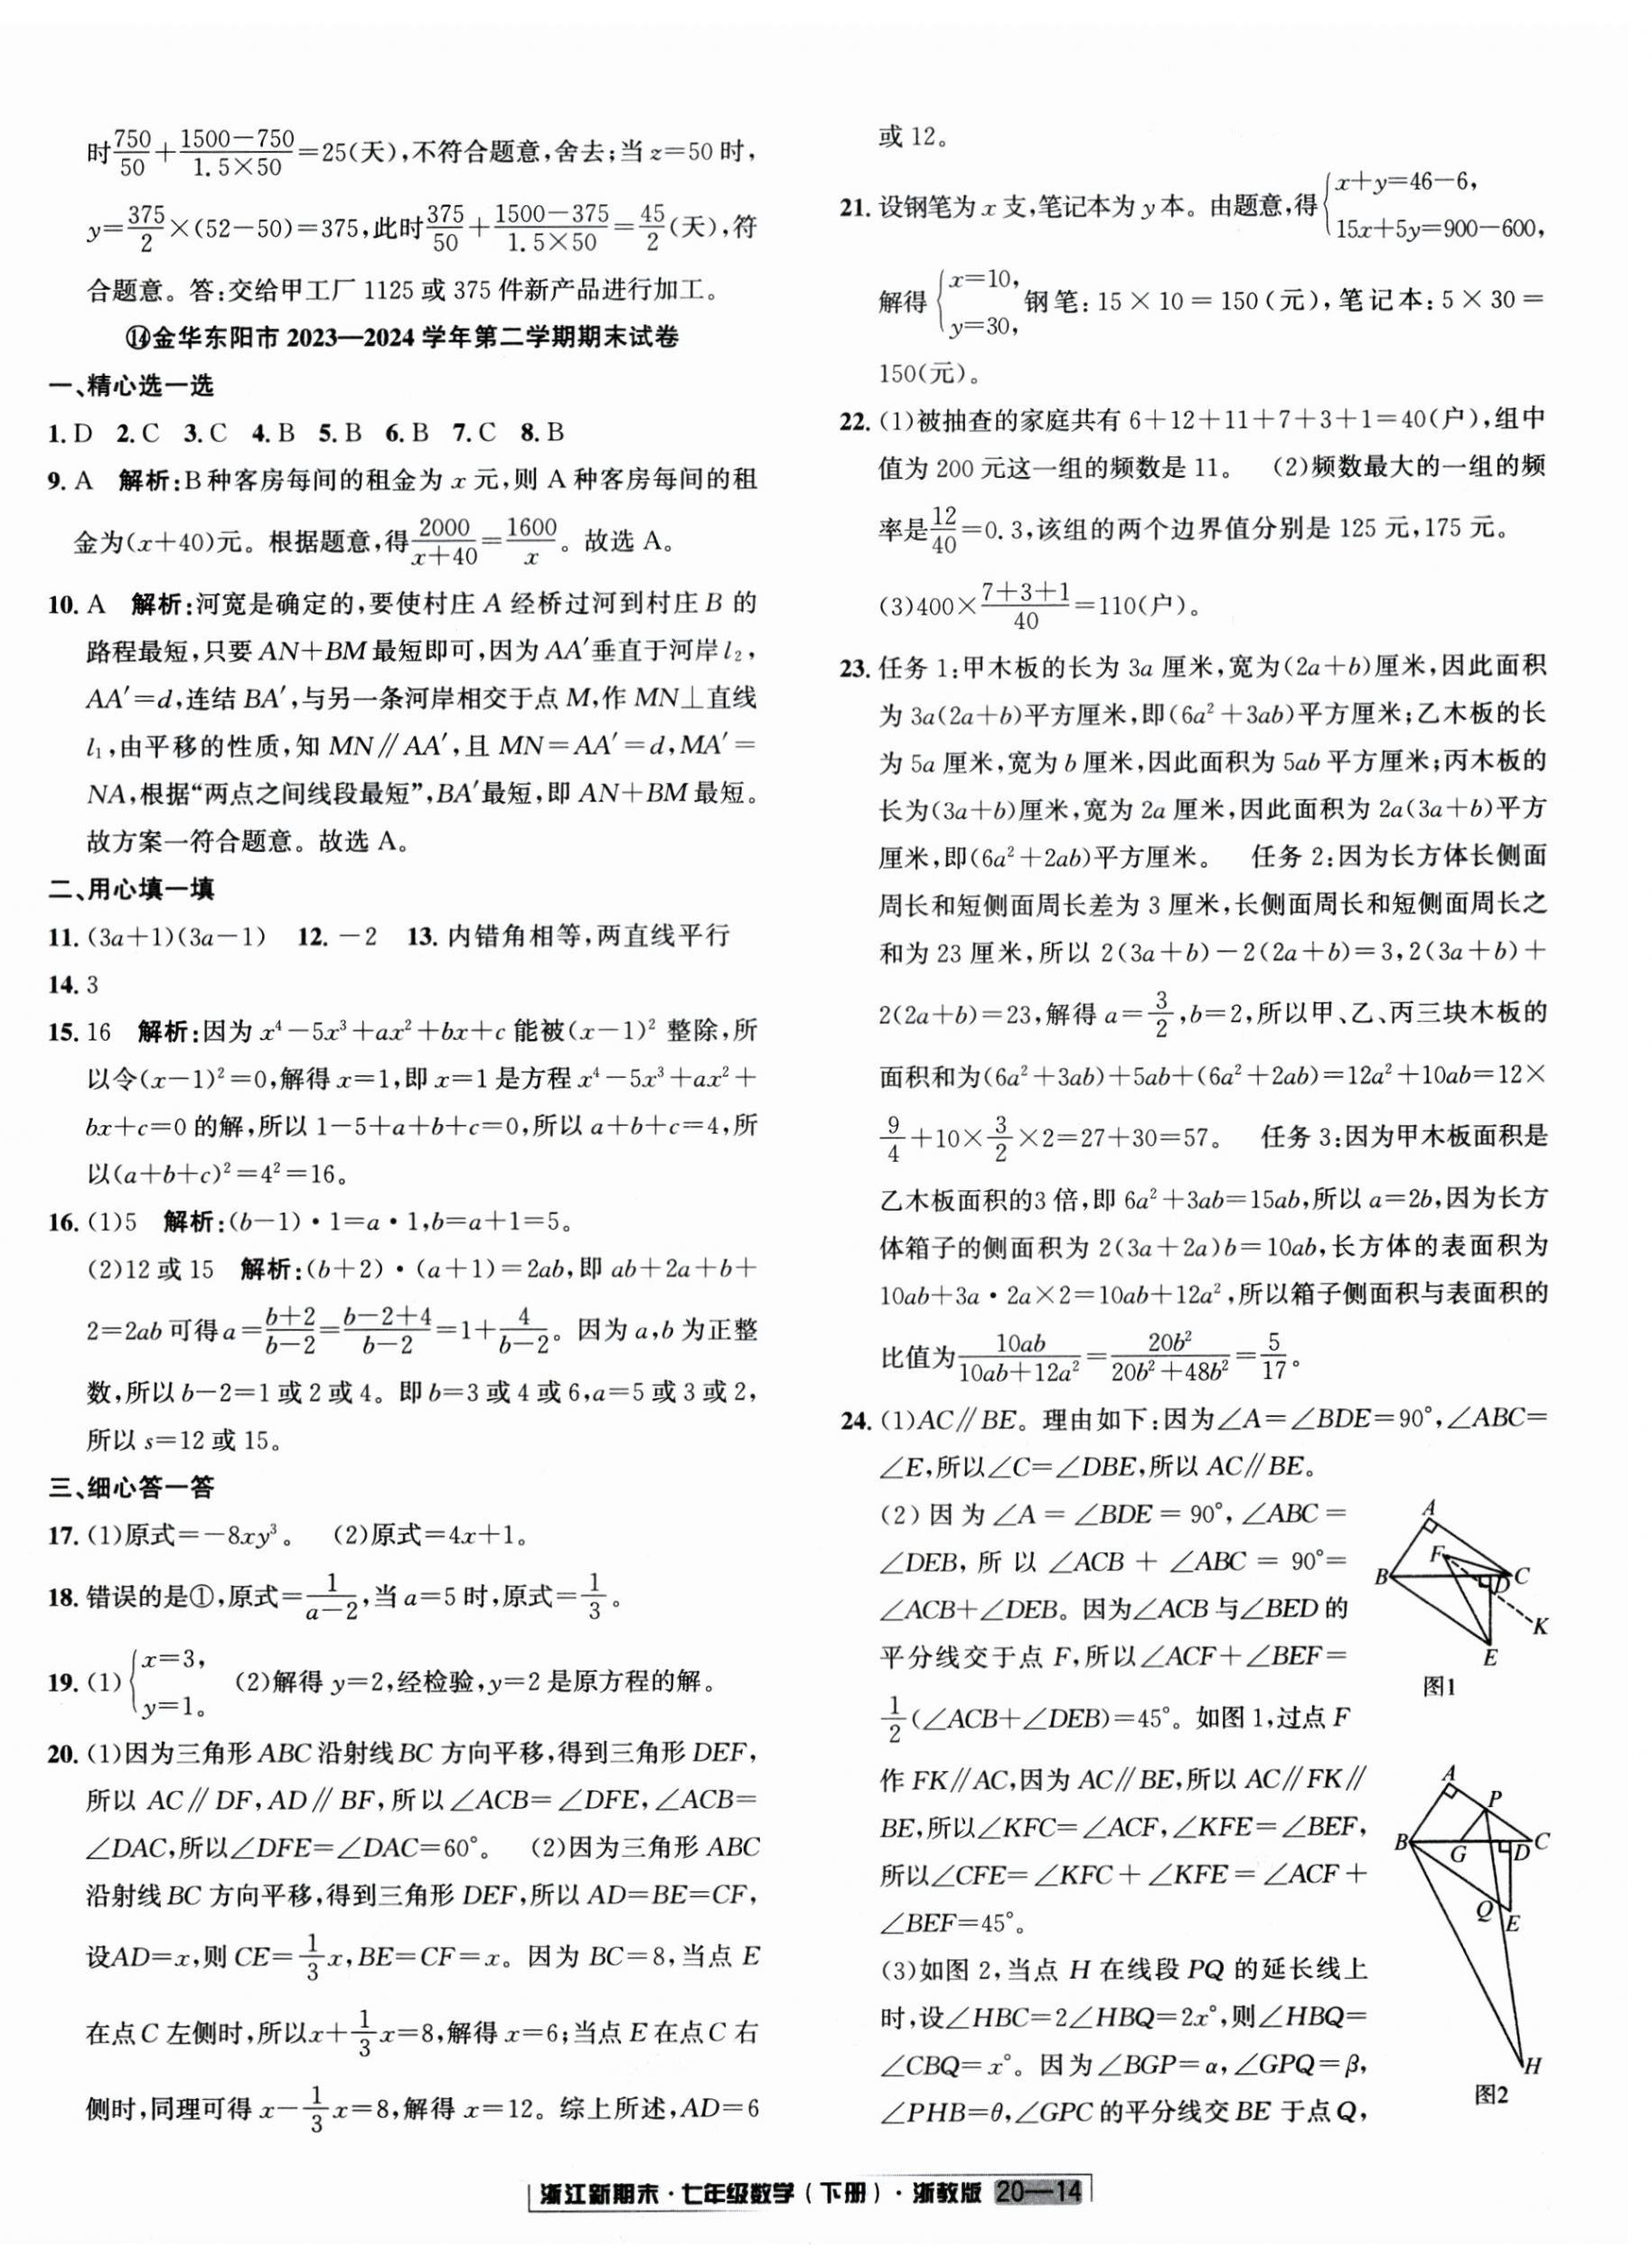 时750/50+(1500-750)/(1.5×50)=25(天),不符合题意,舍去;当z=50时,
y=375/2×(52-50)=375,此时375/50+(1500-375)/(1.5×50)=45/2(天),符
合题意。答:交给甲工厂1125或375件新产品进行加工。
⑭金华东阳市2023—2024学年第二学期期末试卷
一、精心选一选
1.D 2.C 3.C 4.B 5.B 6.B 7.C 8.B
9.A 解析:B种客房每间的租金为x元,则A种客房每间的租
金为(x+40)元。根据题意,得2000/(x+40)=1600/x。故选A。
10.A 解析:河宽是确定的,要使村庄A经桥过河到村庄B的
路程最短,只要AN+BM最短即可,因为AA′垂直于河岸l₂,
AA′=d,连结BA′,与另一条河岸相交于点M,作MN⊥直线
l₁,由平移的性质,知MN∥AA′,且MN=AA′=d,MA′=
NA,根据“两点之间线段最短”,BA′最短,即AN+BM最短。
故方案一符合题意。故选A。
二、用心填一填
11.(3a+1)(3a-1) 12.-2 13.内错角相等,两直线平行
14.3
15.16 解析:因为x⁴-5x³+ax²+bx+c能被(x-1)²整除,所
以令(x-1)²=0,解得x=1,即x=1是方程x⁴-5x³+ax²+
bx+c=0的解,所以1-5+a+b+c=0,所以a+b+c=4,所
以(a+b+c)²=4²=16。
16.(1)5 解析:(b-1)·1=a·1,b=a+1=5。
(2)12或15 解析:(b+2)·(a+1)=2ab,即ab+2a+b+
2=2ab可得a=(b+2)/(b-2)=(b-2+4)/(b-2)=1+4/(b-2)。因为a,b为正整
数,所以b-2=1或2或4。即b=3或4或6,a=5或3或2,
所以s=12或15。
三、细心答一答
17.(1)原式=-8xy³。 (2)原式=4x+1。
18.错误的是①,原式=1/(a-2),当a=5时,原式=1/3。
19.(1){x=3,
y=1。 (2)解得y=2,经检验,y=2是原方程的解。
20.(1)因为三角形ABC沿射线BC方向平移,得到三角形DEF,
所以AC∥DF,AD∥BF,所以∠ACB=∠DFE,∠ACB=
∠DAC,所以∠DFE=∠DAC=60°。 (2)因为三角形ABC
沿射线BC方向平移,得到三角形DEF,所以AD=BE=CF,
设AD=x,则CE=1/3x,BE=CF=x。因为BC=8,当点E
在点C左侧时,所以x+1/3x=8,解得x=6;当点E在点C右
侧时,同理可得x-1/3x=8,解得x=12。综上所述,AD=6
或12。
21.设钢笔为x支,笔记本为y本。由题意,得{x+y=46-6,
15x+5y=900-600,
解得{x=10,
y=30,钢笔:15×10=150(元),笔记本:5×30=
150(元)。
22.(1)被抽查的家庭共有6+12+11+7+3+1=40(户),组中
值为200元这一组的频数是11。 (2)频数最大的一组的频
率是12/40=0.3,该组的两个边界值分别是125元,175元。
(3)400×(7+3+1)/40=110(户)。
23.任务1:甲木板的长为3a厘米,宽为(2a+b)厘米,因此面积
为3a(2a+b)平方厘米,即(6a²+3ab)平方厘米;乙木板的长
为5a厘米,宽为b厘米,因此面积为5ab平方厘米;丙木板的
长为(3a+b)厘米,宽为2a厘米,因此面积为2a(3a+b)平方
厘米,即(6a²+2ab)平方厘米。 任务2:因为长方体长侧面
周长和短侧面周长差为3厘米,长侧面周长和短侧面周长之
和为23厘米,所以2(3a+b)-2(2a+b)=3,2(3a+b)+
2(2a+b)=23,解得a=3/2,b=2,所以甲、乙、丙三块木板的
面积和为(6a²+3ab)+5ab+(6a²+2ab)=12a²+10ab=12×
9/4+10×3/2×2=27+30=57。 任务3:因为甲木板面积是
乙木板面积的3倍,即6a²+3ab=15ab,所以a=2b,因为长方
体箱子的侧面积为2(3a+2a)b=10ab,长方体的表面积为
10ab+3a·2a×2=10ab+12a²,所以箱子侧面积与表面积的
比值为10ab/(10ab+12a²)=20b²/(20b²+48b²)=5/17。
24.(1)AC∥BE。理由如下:因为∠A=∠BDE=90°,∠ABC=
∠E,所以∠C=∠DBE,所以AC∥BE。
(2)因为∠A=∠BDE=90°,∠ABC=
∠DEB,所以∠ACB+∠ABC=90°=
∠ACB+∠DEB。因为∠ACB与∠BED的
平分线交于点F,所以∠ACF+∠BEF=
1/2(∠ACB+∠DEB)=45°。如图1,过点F
作FK∥AC,因为AC∥BE,所以AC∥FK∥
BE,所以∠KFC=∠ACF,∠KFE=∠BEF,
所以∠CFE=∠KFC+∠KFE=∠ACF+
∠BEF=45°。
(3)如图2,当点H在线段PQ的延长线上
时,设∠HBC=2∠HBQ=2x°,则∠HBQ=
∠CBQ=x°。因为∠BGP=α,∠GPQ=β,
∠PHB=θ,∠GPC的平分线交BE于点Q,
A
F
B
D
C
K
E
图1
A
P
B
G
D
C
Q
E
H
图2
浙江新期末·七年级数学(下册)·浙教版 20—14